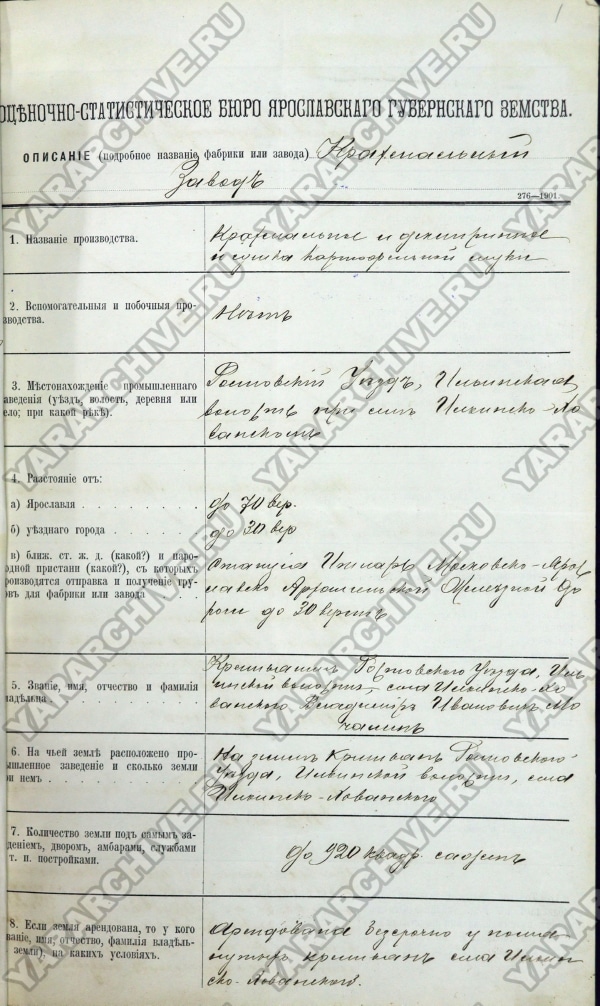 1
ОЦѢНОЧНО-СТАТИСТИЧЕСКОЕ БЮРО ЯРОСЛАВСКАГО ГУБЕРНСКАГО ЗЕМСТВА.
ОПИСАНІЕ (подробное названіе фабрики или завода) Крахмальный
Заводъ
276—1901
1. Названіе производства.
Крахмальное и декстринное
и сушка картофельной муки
2. Вспомогательныя и побочныя про-
зводства.
Нѣтъ
3. Мѣстонахожденіе промышленнаго
аведенія (уѣздъ, волость, деревня или
ело; при какой рѣкѣ).
Ростовскій Уѣздъ, Ильинская
волость при селѣ Ильинско-Хо
ванскомъ
4. Разстояніе отъ:
а) Ярославля
до 70 вер.
б) уѣзднаго города
до 30 вер
в) ближ. ст. ж. д. (какой?) и паро-
дной пристани (какой?), съ которыхъ
роизводятся отправка и полученіе гру-
овъ для фабрики или завода
станція Итларь Московско-Яро
славско Архангельской Желѣзной до
роги до 20 верстъ
5. Званіе, имя, отчество и фамилія
ладѣльца
Крестьянинъ Ростовского Уѣзда, Иль
инской волости, села Ильинско-Хо
ванского Владиміръ Ивановичъ Мо
чалинъ
6. На чьей землѣ расположено про-
мышленное заведеніе и сколько земли
ри немъ
На землѣ крестьянъ Ростовского
Уѣзда, Ильинской волости, села
Ильинско-Хованского
7. Количество земли подъ самымъ за-
деніемъ, дворомъ, амбарами, службами
т. п. постройками.
До 920 квадр. саженъ
8. Если земля арендована, то у кого
ваніе, имя, отчество, фамилія владѣль-
земли), на какихъ условіяхъ.
Арендована безсрочно у помя-
нутыхъ крестьянъ села Ильин
ско-Хованского.
YARARCHIVE.RU